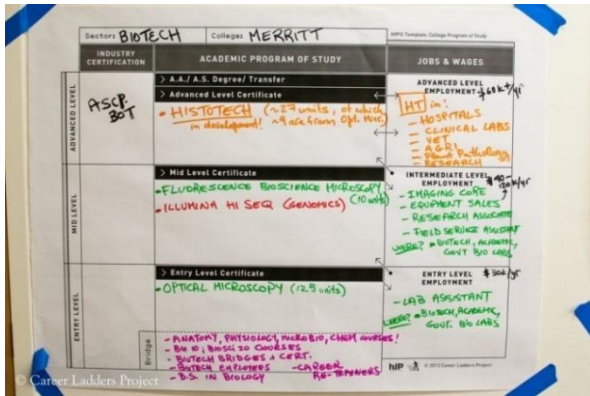 Sector: BIOTECH College: MERRITT HIPO Template: College Program of Study
INDUSTRY CERTIFICATION
ACADEMIC PROGRAM OF STUDY
JOBS & WAGES
ADVANCED LEVEL
ASCP
BOT
> A.A./ A.S. Degree/ Transfer
> Advanced Level Certificate
• HISTOTECH (~27 units, of which
in development! ~9 are from Opt. Micr.)
ADVANCED LEVEL
EMPLOYMENT $60K+/yr
HT in:
- HOSPITALS
- CLINICAL LABS
- VET
- AGRI
- Plant Pathology
- RESEARCH
MID LEVEL
> Mid Level Certificate
• FLUORESCENCE BIOSCIENCE MICROSCOPY
(10 units)
• ILLUMINA HI SEQ (GENOMICS)
INTERMEDIATE LEVEL
EMPLOYMENT
- IMAGING CORE
- EQUIPMENT SALES
- RESEARCH ASSOCIATE
- FIELD SERVICE ASSISTANT
WHERE? • BIOTECH, ACADEMIC,
GOVT BIO LABS
ENTRY LEVEL
> Entry Level Certificate
• OPTICAL MICROSCOPY (12.5 units)
ENTRY LEVEL
EMPLOYMENT
- LAB ASSISTANT
WHERE? • BIOTECH, ACADEMIC,
GOVT. BIO LABS
Bridge
- ANATOMY, PHYSIOLOGY, MICROBIO, CHEM COURSES!
- BIO 10, BIOSCI 20 COURSES
- BIOTECH BRIDGES + CERT.
- BIOTECH EMPLOYEES - CAREER
- B.S. IN BIOLOGY RE-TRAINERS
hip © 2013 Career Ladders Project
© Career Ladders Project